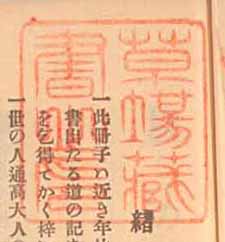 草場藏
書
緒
一此冊子ハ近き年
書出たる道の記
を乞得てかく梓
一世の人通高大人